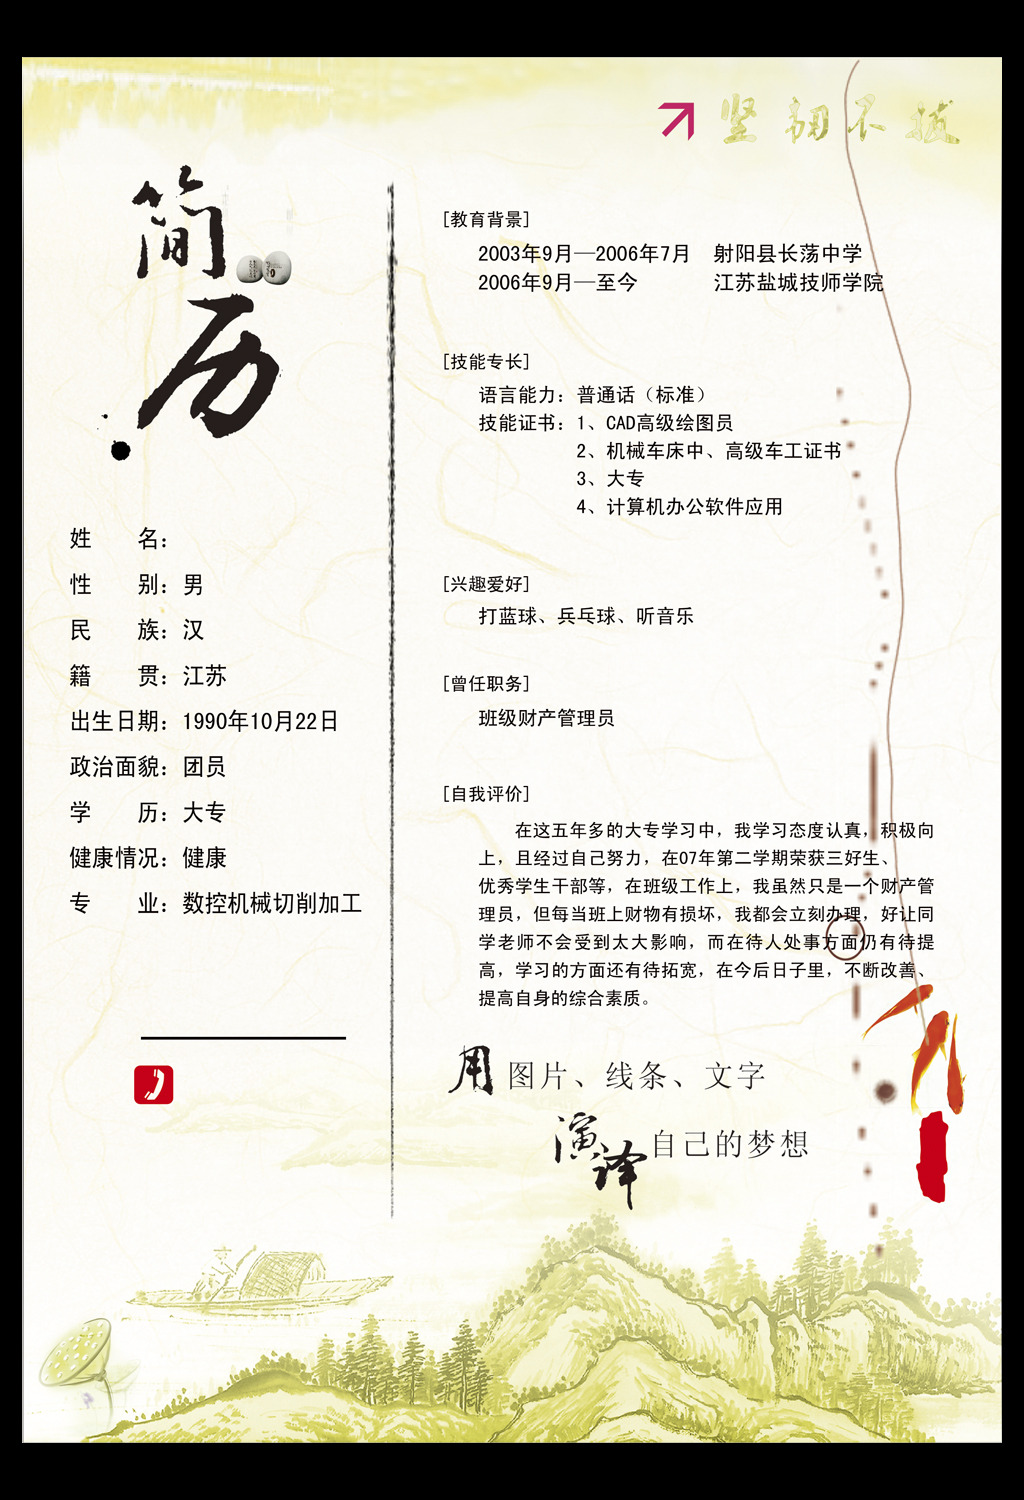 坚韧不拔
简历
姓　　名：
性　　别：男
民　　族：汉
籍　　贯：江苏
出生日期：1990年10月22日
政治面貌：团员
学　　历：大专
健康情况：健康
专　　业：数控机械切削加工
[教育背景]
2003年9月—2006年7月　射阳县长荡中学
2006年9月—至今　江苏盐城技师学院
[技能专长]
语言能力：普通话（标准）
技能证书：1、CAD高级绘图员
2、机械车床中、高级车工证书
3、大专
4、计算机办公软件应用
[兴趣爱好]
打蓝球、兵乓球、听音乐
[曾任职务]
班级财产管理员
[自我评价]
在这五年多的大专学习中，我学习态度认真，积极向
上，且经过自己努力，在07年第二学期荣获三好生、
优秀学生干部等，在班级工作上，我虽然只是一个财产管
理员，但每当班上财物有损坏，我都会立刻办理，好让同
学老师不会受到太大影响，而在待人处事方面仍有待提
高，学习的方面还有待拓宽，在今后日子里，不断改善、
提高自身的综合素质。
用图片、线条、文字
演译自己的梦想